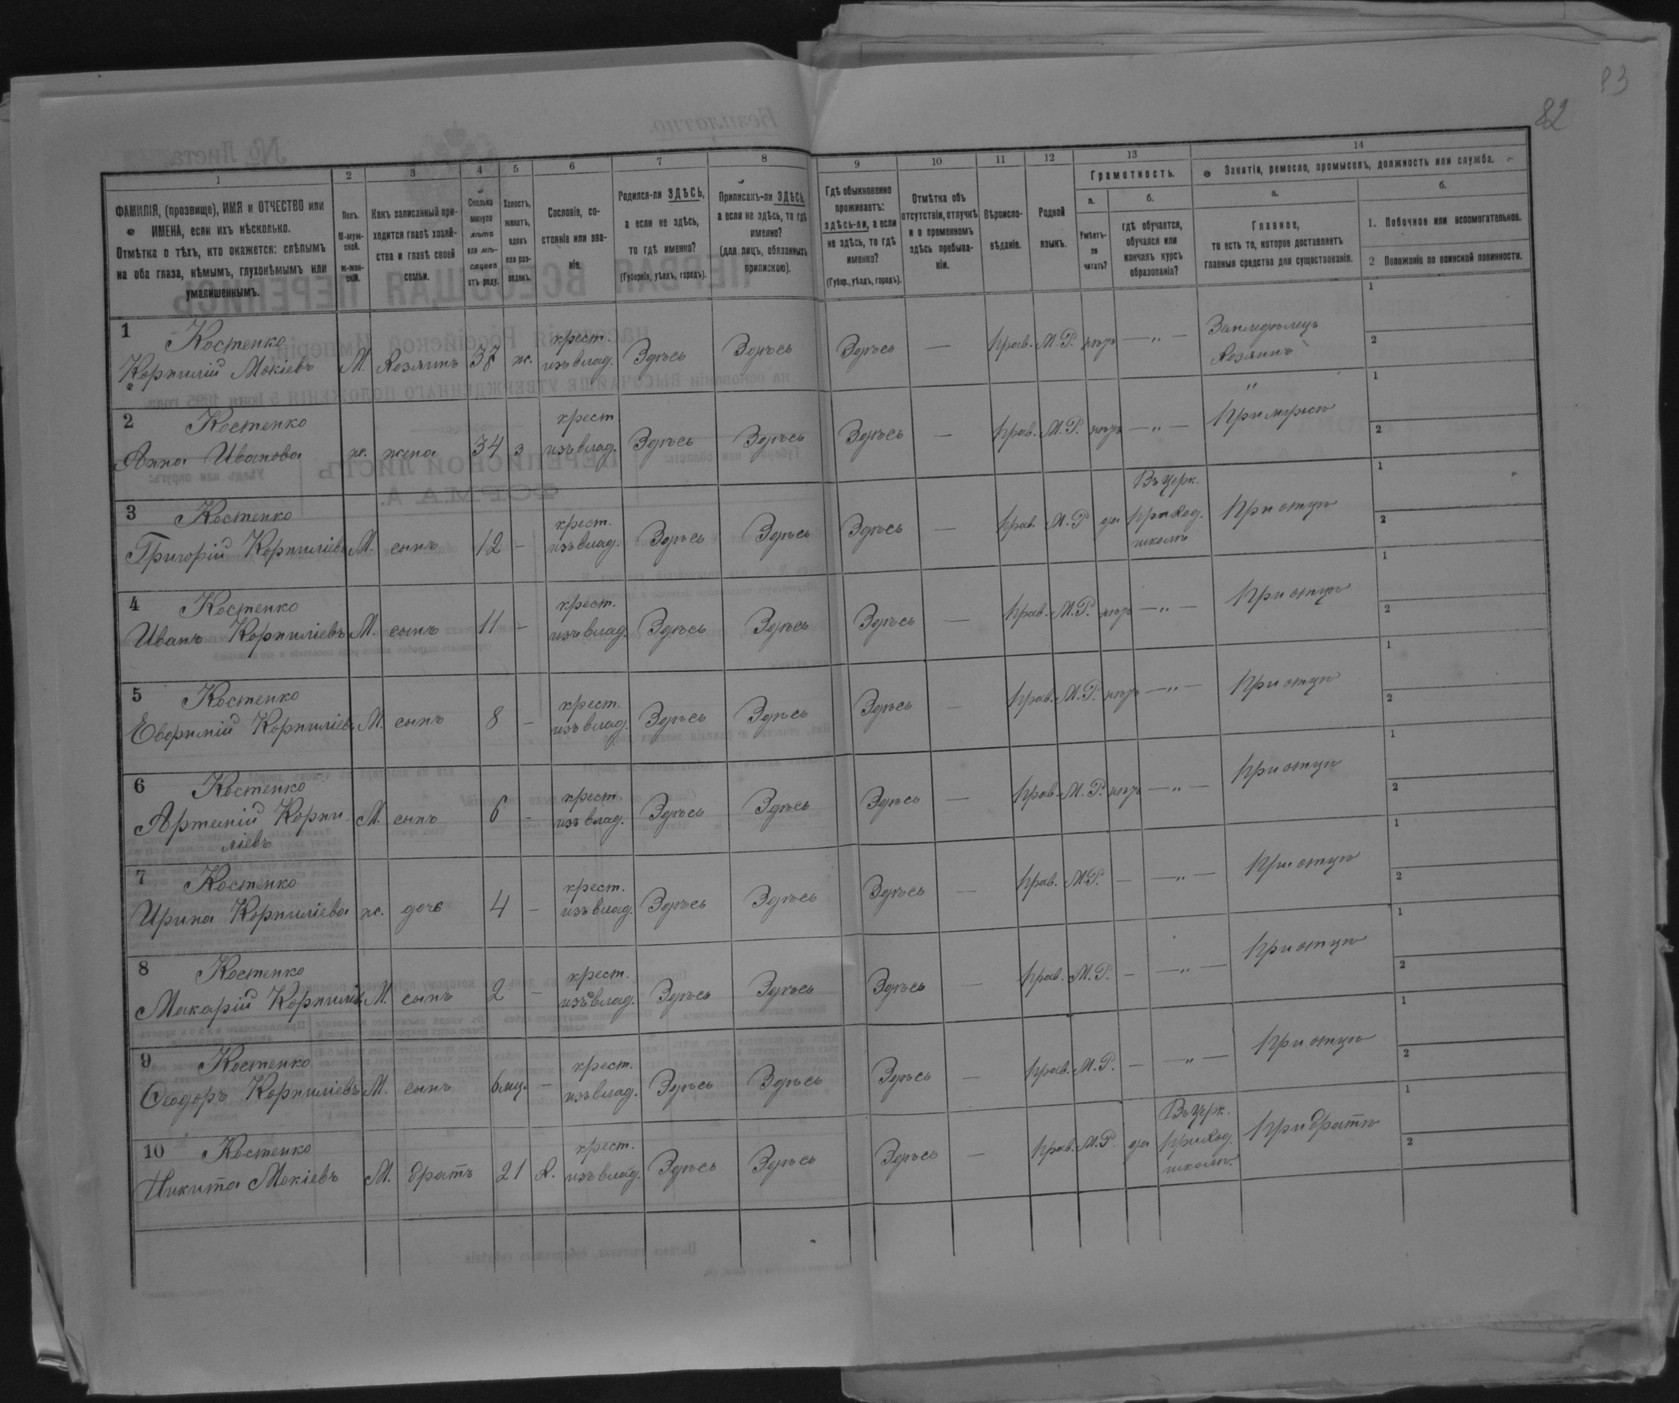 83
82
1 2 3 4 5 6 7 8 9 10 11 12 13 14
ФАМИЛІЯ, (прозвище), ИМЯ и ОТЧЕСТВО или ИМЕНА, если ихъ нѣсколько.
Отмѣтка о тѣхъ, кто окажется: слѣпымъ на оба глаза, нѣмымъ, глухонѣмымъ или умалишеннымъ.
Полъ.
М-мужской.
Ж-женскій.
Какъ записанный приходится главѣ хозяйства и главѣ своей семьи.
Сколько минуло лѣтъ или мѣсяцевъ отъ роду.
Холостъ, женатъ, вдовъ или разведенъ.
Сословіе, состояніе или званіе
Родился-ли ЗДѢСЬ, а если не здѣсь, то гдѣ именно?
(Губернія, уѣздъ, городъ).
Приписанъ-ли ЗДѢСЬ, а если не здѣсь, то гдѣ именно?
(для лицъ, обязанныхъ припискою).
Гдѣ обыкновенно проживаетъ: здѣсь-ли, а если не здѣсь, то гдѣ именно?
(Губер., уѣздъ, городъ).
Отмѣтка объ отсутствіи, отлучкѣ и о временномъ здѣсь пребываніи.
Вѣроисповѣданіе.
Родной языкъ.
Грамотность.
а.
Умѣетъ-ли читать?
б.
гдѣ обучается, обучался или кончилъ курсъ образованія?
Занятіе, ремесло, промыселъ, должность или служба.
а.
Главное,
то есть то, которое доставляетъ главныя средства для существованія.
б.
1. Побочное или вспомогательное.
2 Положеніе по воинской повинности.
1 Костенко
Корнилій Мокіевъ М. Хозяинъ 38 ж. крест. изъ влад. Здѣсь Здѣсь Здѣсь — прав. М.Р. нѣтъ —„— Земледѣлецъ Хозяинъ 1 2
2 Костенко
Анна Иванова ж. жена 34 з крест изъ влад. Здѣсь Здѣсь Здѣсь — прав. М.Р. нѣтъ —„— „ При мужѣ 1 2
3 Костенко
Григорій Корниліевъ М. сынъ 12 - крест. изъ влад. Здѣсь Здѣсь Здѣсь — прав. М.Р да Въ церк. приход. школѣ При отцѣ 1 2
4 Костенко
Иванъ Корниліевъ М. сынъ 11 - крест. изъ влад. Здѣсь Здѣсь Здѣсь — прав. М.Р. нѣтъ —„— При отцѣ 1 2
5 Костенко
Евфимій Корниліевъ М. сынъ 8 - крест. изъ влад. Здѣсь Здѣсь Здѣсь — прав. М.Р. нѣтъ —„— При отцѣ 1 2
6 Костенко
Артемій Корни
ліевъ М. сынъ 6 - крест изъ влад. Здѣсь Здѣсь Здѣсь — прав. М.Р. нѣтъ —„— При отцѣ 1 2
7 Костенко
Ирина Корниліева ж. дочь 4 - крест. изъ влад. Здѣсь Здѣсь Здѣсь — прав. М.Р. — —„— При отцѣ 1 2
8 Костенко
Макарій Корниліев М. сынъ 2 - крест. изъ влад. Здѣсь Здѣсь Здѣсь — прав. М.Р. — —„— При отцѣ 1 2
9 Костенко
Ѳеодоръ Корниліевъ М. сынъ 6 мц. — крест. изъ влад. Здѣсь Здѣсь Здѣсь — прав. М.Р. — —„— При отцѣ 1 2
10 Костенко
Никита Мокіевъ М. братъ 21 х. крест. изъ влад. Здѣсь Здѣсь Здѣсь — прав. М.Р да Въ церк. приход. школѣ. При братѣ 1 2